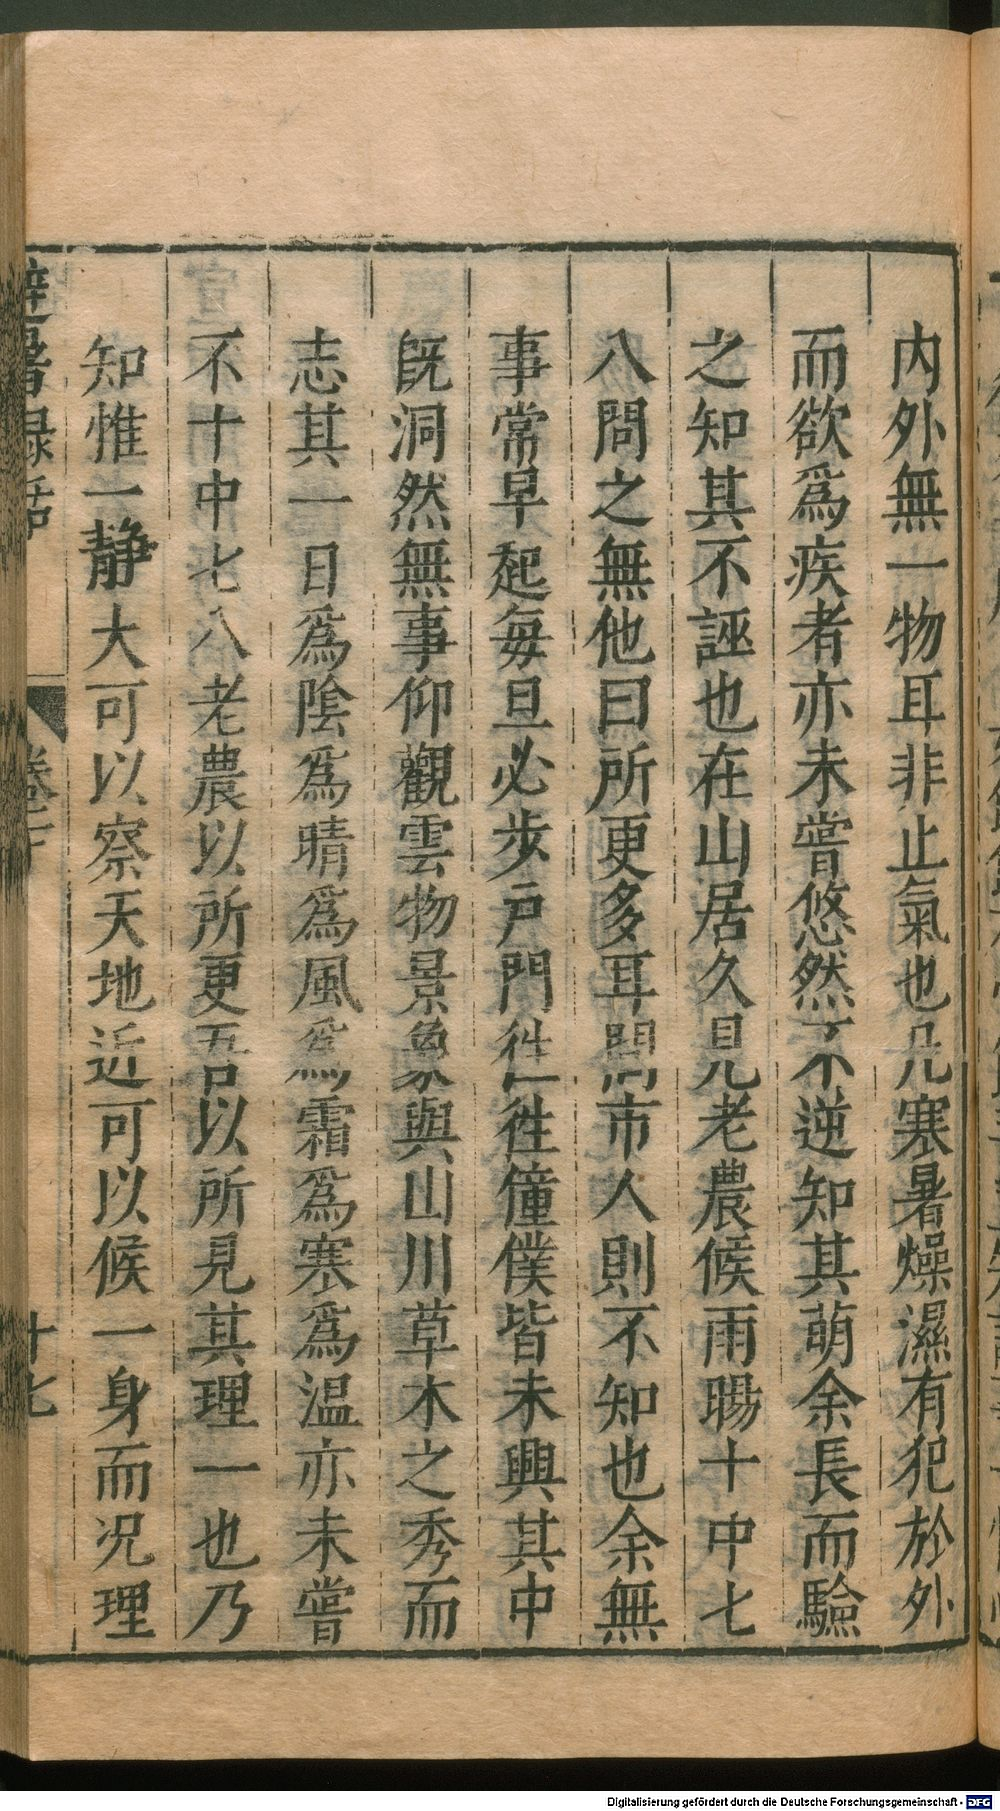 内外無一物耳非止氣也凡寒暑燥濕有犯於外
而欲爲疾者亦未嘗悠然不逆知其萌余長而驗
之知其不誣也在山居久見老農候雨暘十中七
八問之無他曰所更多耳問市人則不知也余無
事常早起每旦必步戶門往往僮僕皆未興其中
既洞然無事仰觀雲物景象與山川草木之秀而
志其一日爲陰爲晴爲風爲霜爲寒爲溫亦未嘗
不十中七八老農以所更吾以所見其理一也乃
知惟一静大可以察天地近可以候一身而况理
避暑録話 卷下 十七
Digitalisierung gefördert durch die Deutsche Forschungsgemeinschaft - DFG